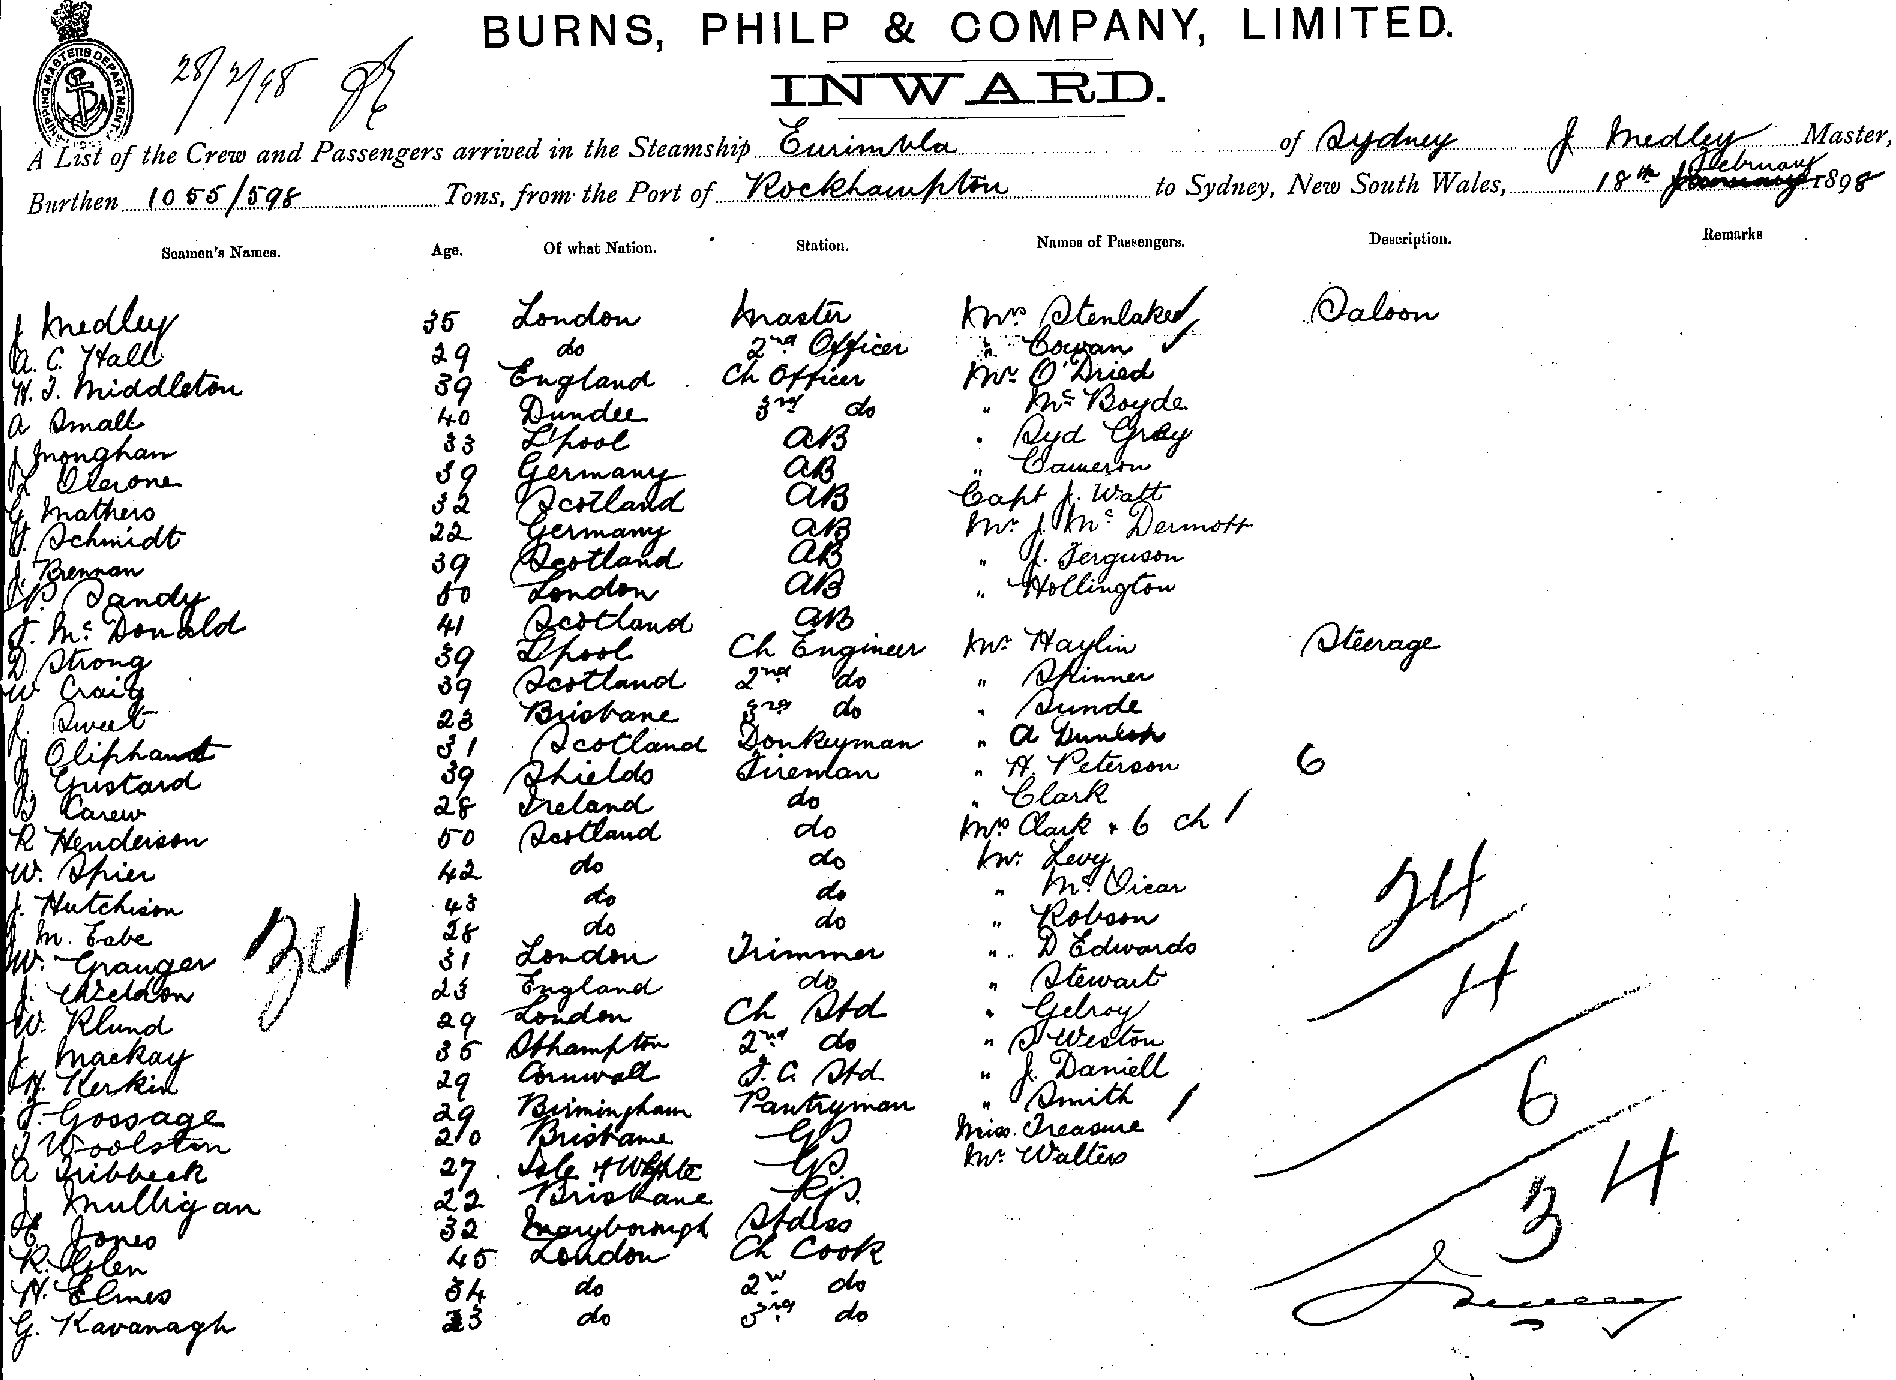 BURNS, PHILP & COMPANY, LIMITED.
INWARD.
SHIPPING MASTERS DEPARTMENT
28/2/98
A List of the Crew and Passengers arrived in the Steamship Eurimbla of Sydney J Medley Master,
Burthen 1055/598 Tons, from the Port of Rockhampton to Sydney, New South Wales, 18th February 1898
Seamen's Names. Age. Of what Nation. Station. Names of Passengers. Description. Remarks
J Medley 35 London Master Mrs Stenlake Saloon
A. C. Hall 29 do 2nd Officer " Cowan
H. J. Middleton 39 England Ch Officer Mr O'Dried
A Small 40 Dundee 3rd do " Mc Boyde
J Monghan 33 L'pool AB " Syd Gray
L Olerone 39 Germany AB " Cameron
G Mathers 32 Scotland AB Capt J. Watt
J. Schmidt 22 Germany AB Mr J. Mc Dermott
J. Brennan 39 Scotland AB " J. Ferguson
P. Sandy 50 London AB " Hollington
J. Mc Donald 41 Scotland AB
D Strong 39 L'pool Ch Engineer Mr Haylin Steerage
W Craig 39 Scotland 2nd do " Skinner
J. Sweet 23 Brisbane 3rd do " Sunde
J Oliphant 31 Scotland Donkeyman " A Dunlop
J Gustard 39 Shields Fireman " H. Peterson 6
T Carew 28 Ireland do " Clark
R Henderson 50 Scotland do Mrs Clark + 6 ch 1
W. Spier 42 do do Mr. Levy
J. Hutchison 43 do do " Mc Vicar 34
J M. Cabe 28 do do " Robson
W. Granger 31 London Trimmer " D Edwards
34
J. Weldon 23 England do " Stewart 4
W. Klund 29 London Ch Std " Gelroy
J. Mackay 35 Sthampton 2nd do " J Weston
H. Kerkin 29 Cornwall F.C. Std " J. Daniell
J. Gossage 29 Birmingham Pantryman " Smith 6
J Woolston 20 Brisbane GS Miss. Treasure
A Tribbeck 27 Isle of Whyte GS. Mr Walters
J Mulligan 22 Brisbane 34
E Jones 32 Maryborough Stdess
R. Glen 45 London Ch Cook
H. Elmes 34 do 2nd do
G. Kavanagh 23 do 3rd do